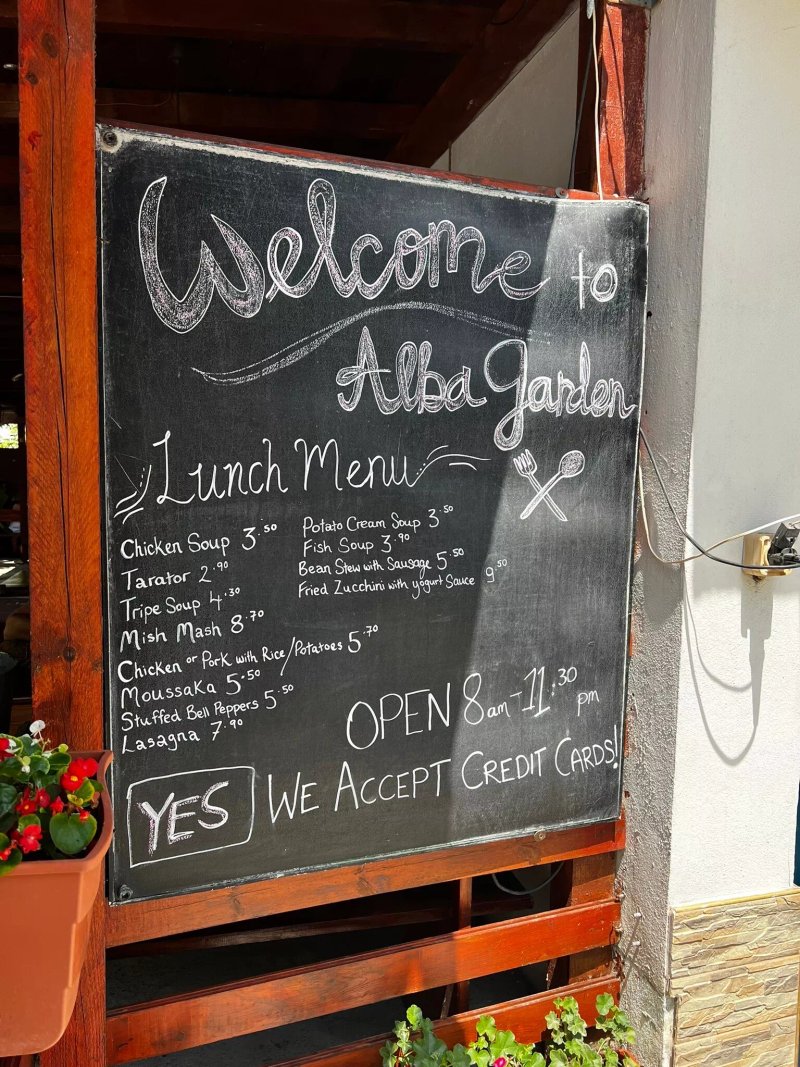 Welcome to
Alba Garden
Lunch Menu
Chicken Soup 3.50
Tarator 2.90
Tripe Soup 4.30
Mish Mash 8.70
Chicken or Pork with Rice/Potatoes 5.70
Moussaka 5.50
Stuffed Bell Peppers 5.50
Lasagna 7.90
Potato Cream Soup 3.50
Fish Soup 3.90
Bean Stew with Sausage 5.50
Fried Zucchini with yogurt Sauce 9.50
OPEN 8am-11:30 pm
YES WE ACCEPT CREDIT CARDS!